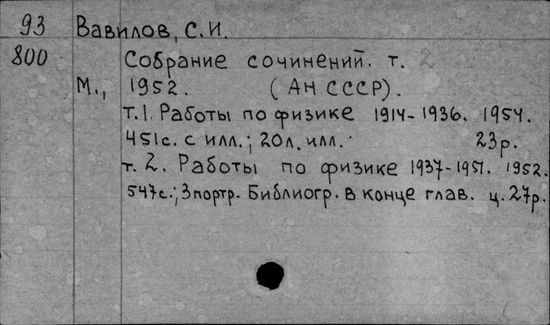 93 Вавилов, С.И.
800 Собрание сочинений. т. 2
М., 1952. (АН СССР).
т.1. Работы по физике 1914-1936. 1954.
451с. с илл.; 20л. илл. 23р.
т. 2. Работы по физике 1937-1951. 1952.
547с.; 3портр. Библиогр. в конце глав. ц. 27р.